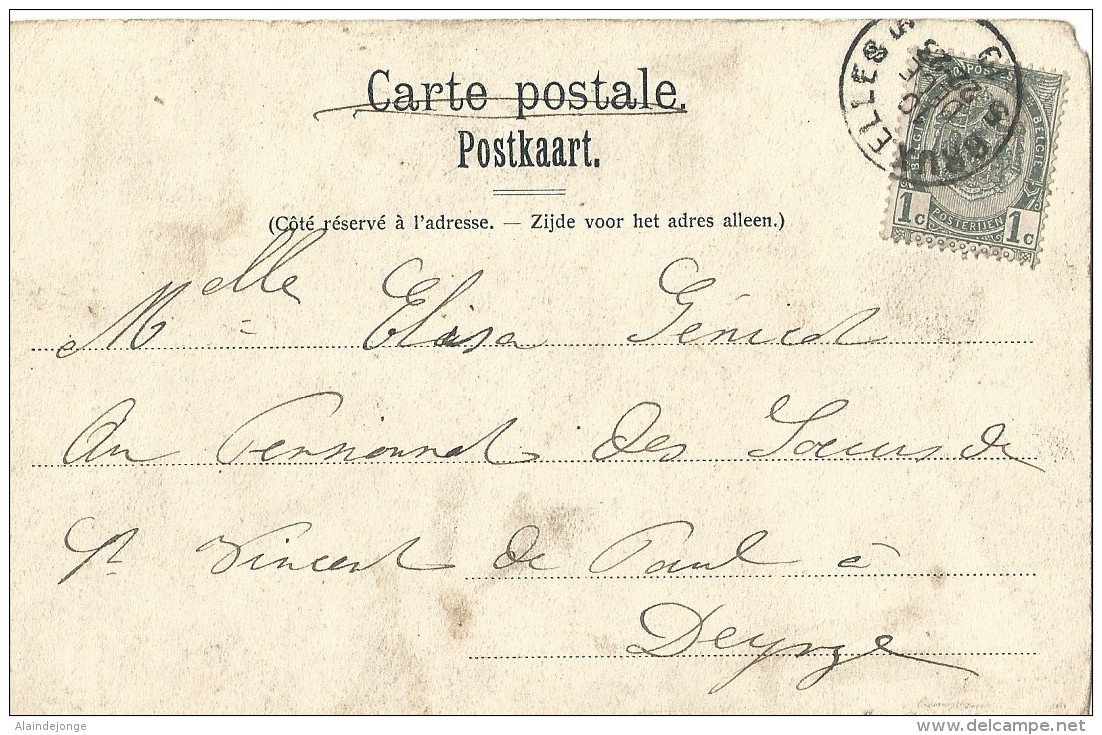 Carte postale.
Postkaart.
(Côté réservé à l'adresse. — Zijde voor het adres alleen.)
BRUXELLES
POSTERIJEN
1c 1c
Melle Elisa Génicot
Au Pensionnat des Soeurs de
St Vincent de Paul à
Deynze
Alaindejonge
delcampe.net